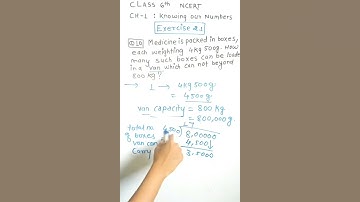 CLASS 6th NCERT
CH-1 : Knowing Our Numbers
Exercise 2.1
Q10 Medicine is packed in boxes,
each weighting 4kg 500g. How
many such boxes can be loaded
in a van which can not beyond
800 kg?
→ 1 → 4kg 500g
= 4500g
van capacity = 800 kg
= 800,000g.
total no.
of boxes 4500 8,00000
van can 4,500↓
carry 3,5000